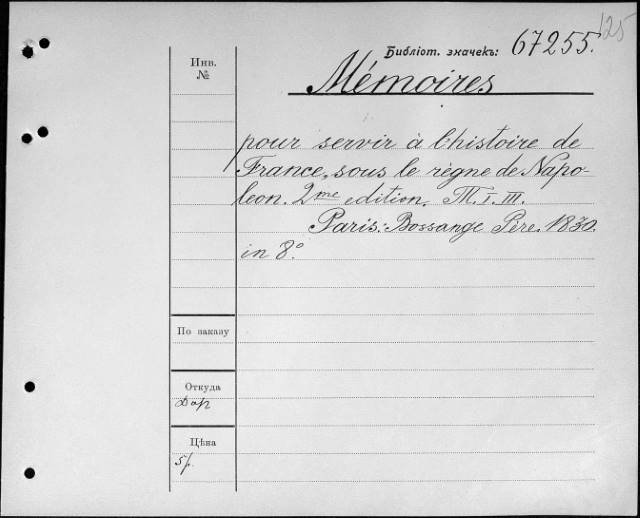 125
Библіот. значекъ: 67255.
Инв.
№
Mémoires
pour servir à l'histoire de
France, sous le règne de Napo-
leon. 2me edition. T. I. III.
Paris: Bossange Père. 1830.
in 8°.
По заказу
Откуда
Дар
Цѣна
5р.